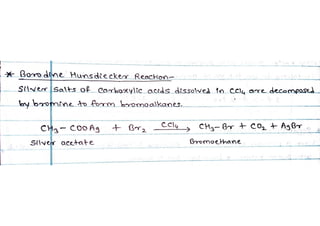 * Borodine Hunsdiecker Reaction-
Silver Salts of carboxylic acids dissolved in CCl₄ are decomposed
by bromine to form bromoalkanes.
CH₃ - COOAg + Br₂ —CCl₄→ CH₃-Br + CO₂ + AgBr
Silver acetate Bromoethane